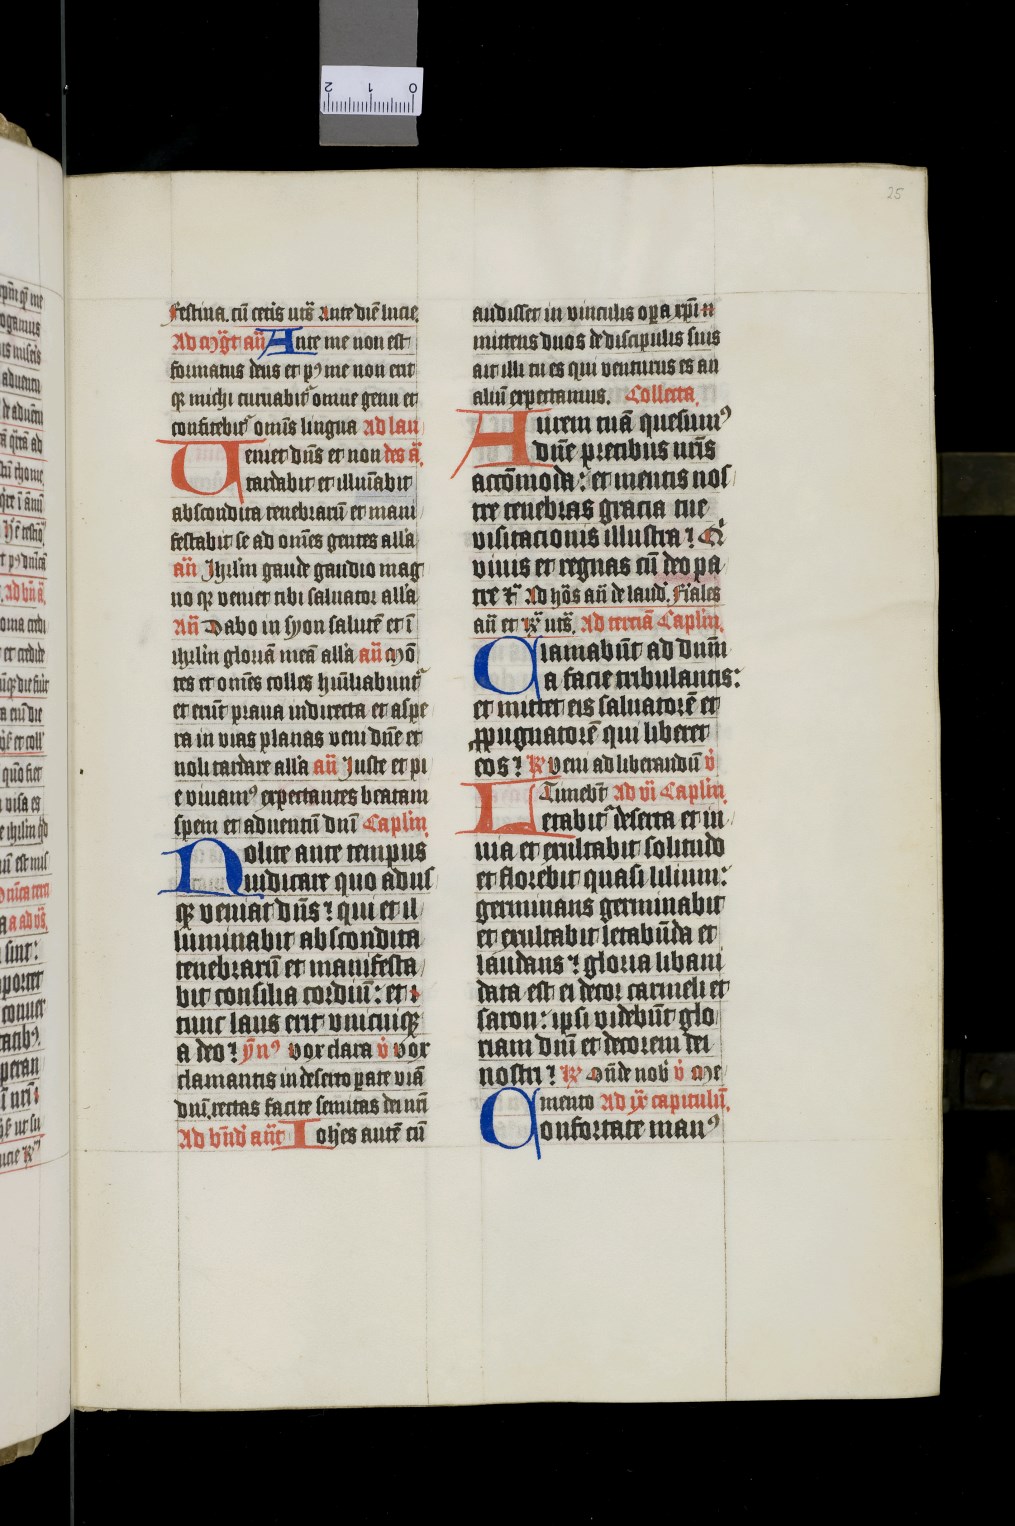 25
festina. cū cetis ūrs Ante diē lucie
Ad mḡt an̄ Ante me non est
formatus deus et pꝰ me non erit
qꝫ michi curuabit᷑ omne genu et
confitebit᷑ om̄s lingua ad lau
Ueniet dn̄s et non des ā.
tardabit et illuīabit
abscondita tenebrarū et mani
festabit se ad om̄es gentes all'a
an̄ Ihrlm gaude gaudio mag
no qꝫ veniet tibi saluator all'a
An̄ Dabo in syon salutē et ī
ihrlm gloriā meā all'a an̄ Mō
tes et om̄es colles hūiliabunt᷑
et erūt praua indirecta et aspe
ra in vias planas veni dn̄e et
noli tardare all'a an̄ Iuste et pi
e viuamꝰ expectantes beatam
spem et aduentū dn̄i Caplm̄.
Nolite ante tempus
iudicare quo adus
qꝫ veniat dn̄s ⁊ qui et il
luminabit abscondita
tenebrarū et manifesta
bit consilia cordiū: et
tunc laus erit vnicuiqꝫ
a deo ⁊ ȳnꝰ vox clara v̄ vox
clamantis in deserto parate viā
dn̄i. rectas facite semitas dei nr̄i
Ad bn̄d' ant̄ Ioh'es autē cū
audisset in vinculis oꝑa xp̄i
mittens duos de discipulis suis
ait illi tu es qui venturus es an
aliū expectamus. Collecta.
Aurem tuā quesumꝰ
dn̄e precibus nr̄is
accōmoda: et mentis nos
tre tenebras gracia tue
visitacionis illustra ⁊ Q'
viuis et regnas cū deo pa
tre ⁊c̄ Ad hōs an̄ de laud. Fiales
an̄ et ꝶ ūrs. Ad terciā Caplm̄.
Clamabūt ad dn̄m
a facie tribulantis:
et mittet eis saluatorē et
ꝓpugnatorē qui liberet
eos ⁊ ꝶ veni ad liberandū v̄
Timebt̄ Ad vī Caplm̄.
Letabit᷑ deserta et in
uia et exultabit solitudo
et florebit quasi lilium:
germinans germinabit
et exultabit letabūda et
laudans ⁊ gloria libani
data est ei decor carmeli et
saron: ipsi videbūt glo
riam dn̄i et decorem dei
nostri ⁊ ꝶ On̄de nob̄ v̄ Me
mento Ad ix̄ capitulū.
Confortate manꝰ